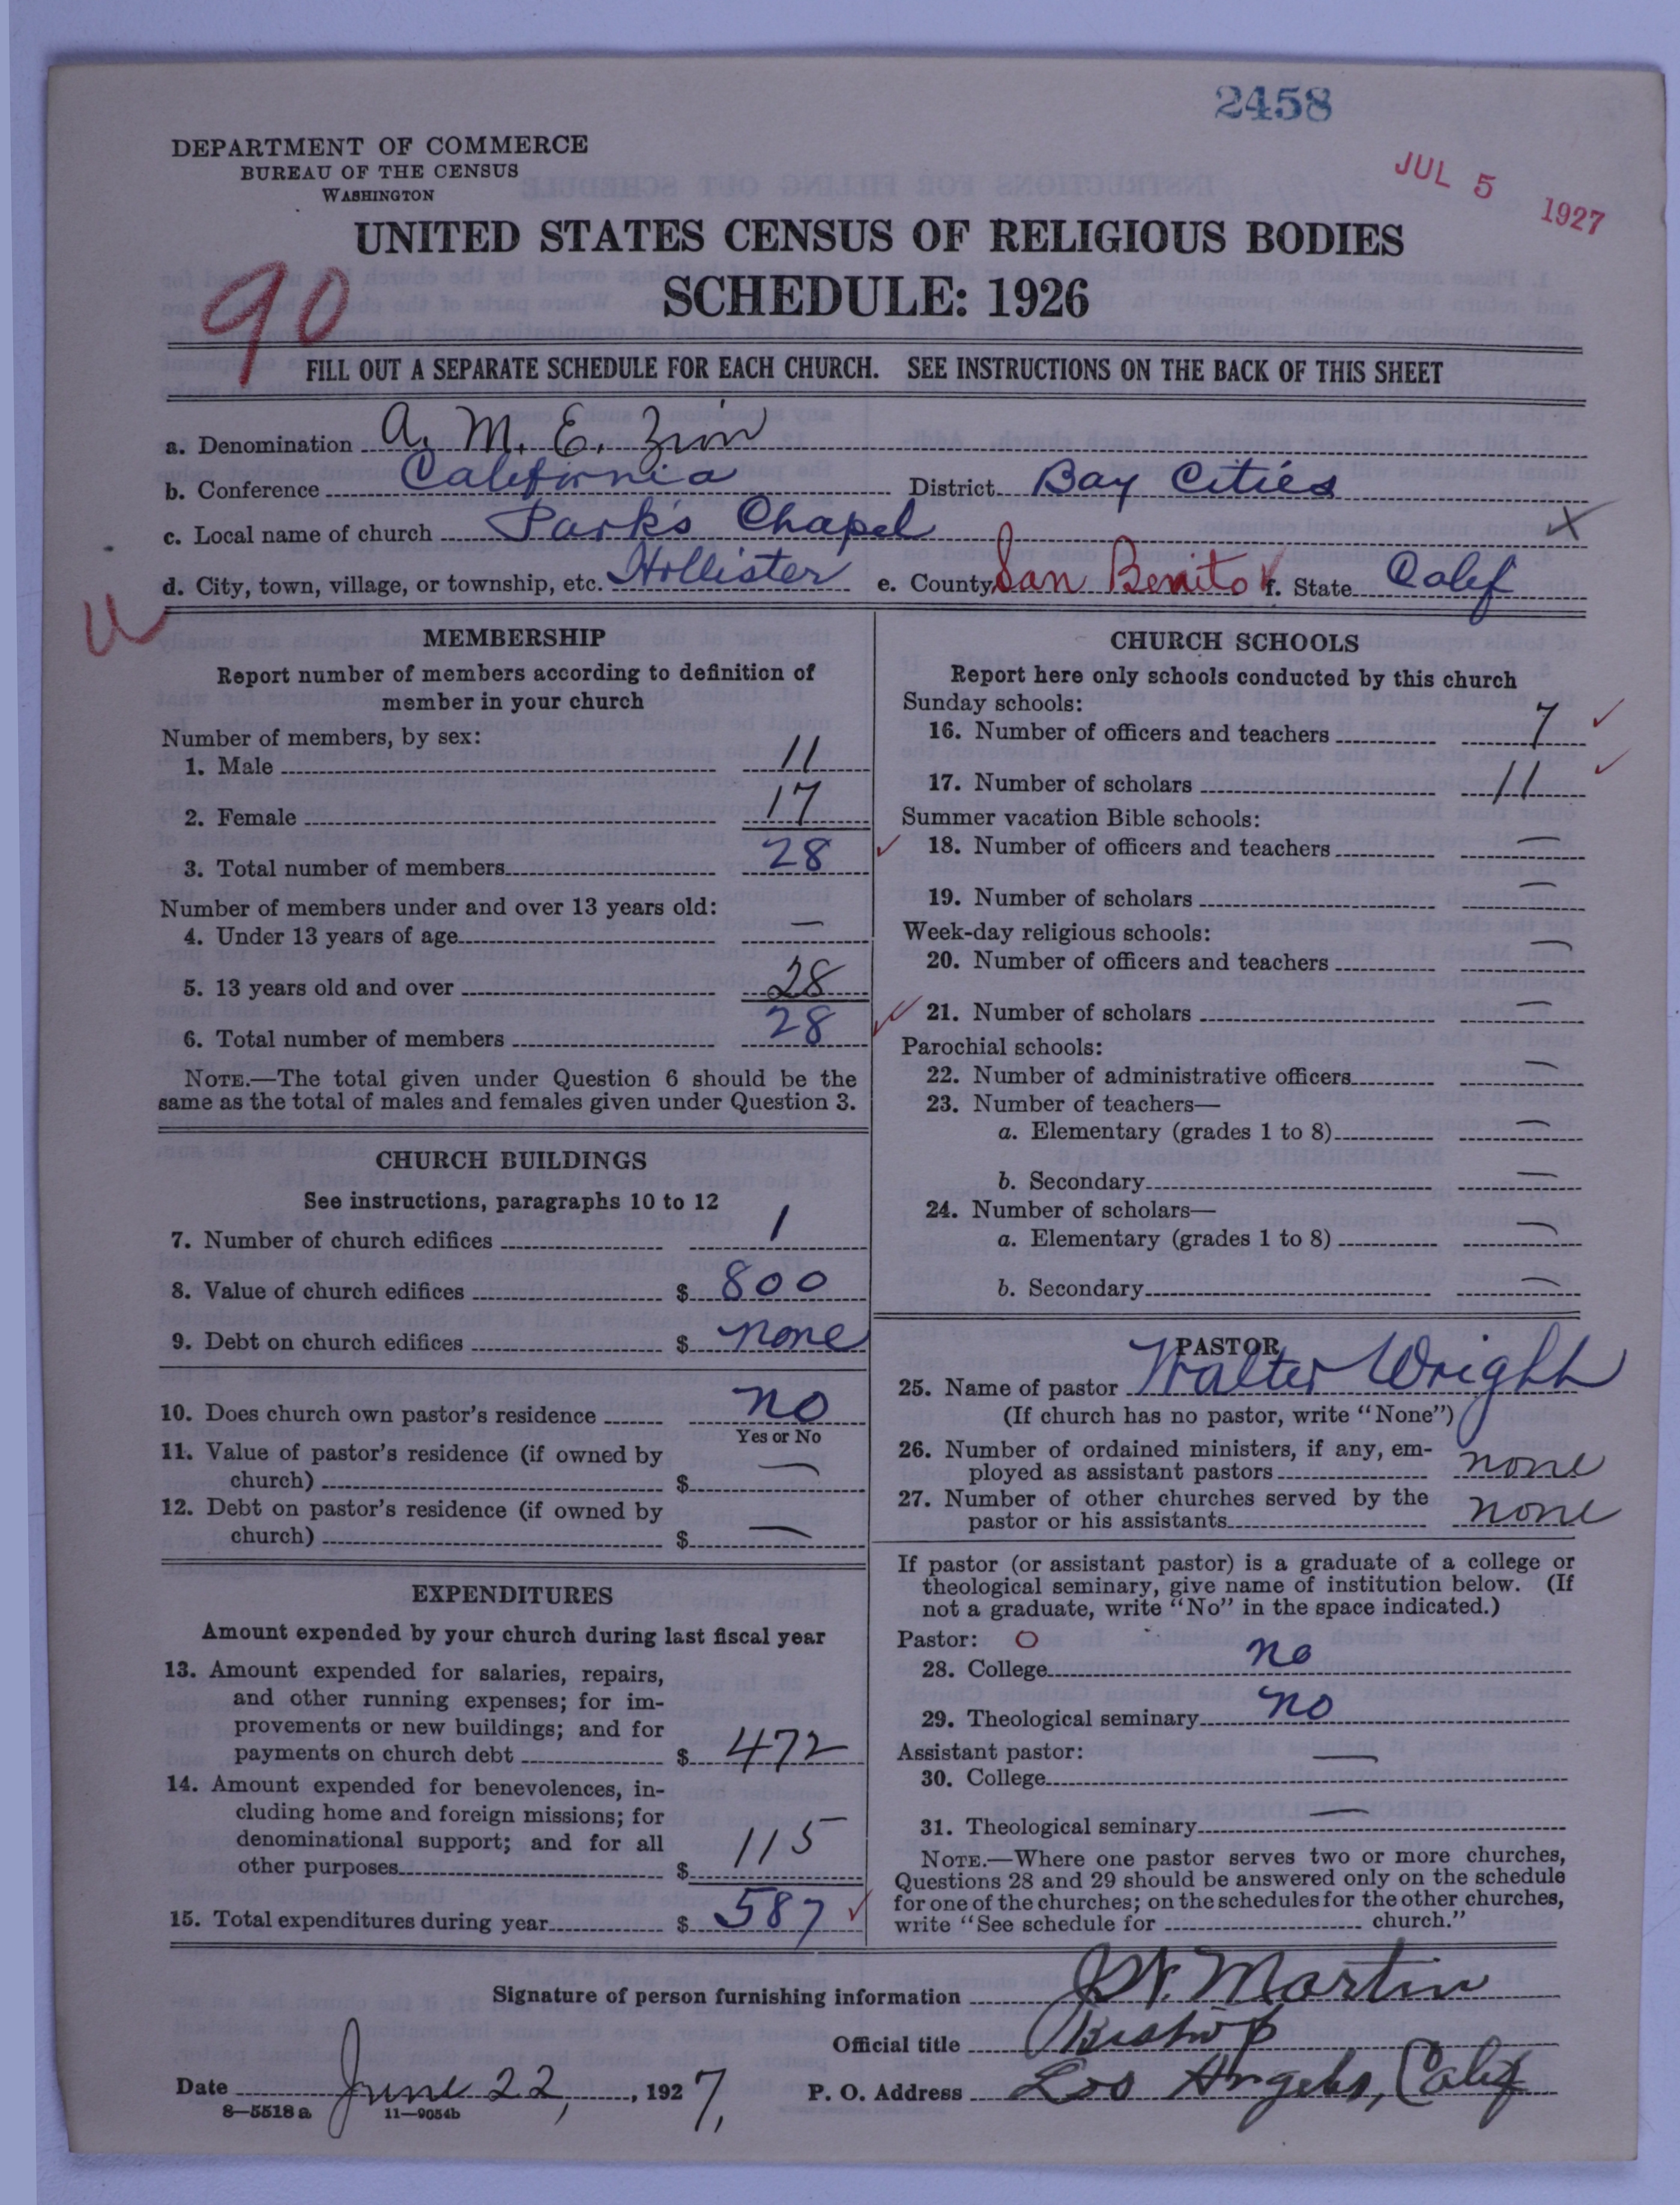 2458
JUL 5 1927
DEPARTMENT OF COMMERCE
BUREAU OF THE CENSUS
WASHINGTON
UNITED STATES CENSUS OF RELIGIOUS BODIES
SCHEDULE: 1926
90
FILL OUT A SEPARATE SCHEDULE FOR EACH CHURCH. SEE INSTRUCTIONS ON THE BACK OF THIS SHEET
a. Denomination A. M. E. Zion
b. Conference California District Bay Cities
c. Local name of church Park's Chapel X
d. City, town, village, or township, etc. Hollister e. County San Benito f. State Calif
U
MEMBERSHIP
Report number of members according to definition of
member in your church
Number of members, by sex:
1. Male 11
2. Female 17
3. Total number of members 28
Number of members under and over 13 years old:
4. Under 13 years of age —
5. 13 years old and over 28
6. Total number of members 28
NOTE.—The total given under Question 6 should be the
same as the total of males and females given under Question 3.
CHURCH BUILDINGS
See instructions, paragraphs 10 to 12
7. Number of church edifices 1
8. Value of church edifices $ 800
9. Debt on church edifices $ none
10. Does church own pastor's residence no
Yes or No
11. Value of pastor's residence (if owned by
church) $ —
12. Debt on pastor's residence (if owned by
church) $ —
EXPENDITURES
Amount expended by your church during last fiscal year
13. Amount expended for salaries, repairs,
and other running expenses; for im-
provements or new buildings; and for
payments on church debt $ 472
14. Amount expended for benevolences, in-
cluding home and foreign missions; for
denominational support; and for all
other purposes $ 115
15. Total expenditures during year $ 587
CHURCH SCHOOLS
Report here only schools conducted by this church
Sunday schools:
16. Number of officers and teachers 7
17. Number of scholars 11
Summer vacation Bible schools:
18. Number of officers and teachers —
19. Number of scholars —
Week-day religious schools:
20. Number of officers and teachers —
21. Number of scholars —
Parochial schools:
22. Number of administrative officers —
23. Number of teachers—
a. Elementary (grades 1 to 8) —
b. Secondary —
24. Number of scholars—
a. Elementary (grades 1 to 8) —
b. Secondary —
PASTOR
25. Name of pastor Walter Wright
(If church has no pastor, write "None")
26. Number of ordained ministers, if any, em-
ployed as assistant pastors none
27. Number of other churches served by the
pastor or his assistants none
If pastor (or assistant pastor) is a graduate of a college or
theological seminary, give name of institution below. (If
not a graduate, write "No" in the space indicated.)
Pastor: O
28. College no
29. Theological seminary no
Assistant pastor:
30. College —
31. Theological seminary —
NOTE.—Where one pastor serves two or more churches,
Questions 28 and 29 should be answered only on the schedule
for one of the churches; on the schedules for the other churches,
write "See schedule for church."
Signature of person furnishing information J. W. Martin
Official title Bishop
Date June 22, 1927, P. O. Address Los Angeles, Calif
8—5518 a 11—9054b